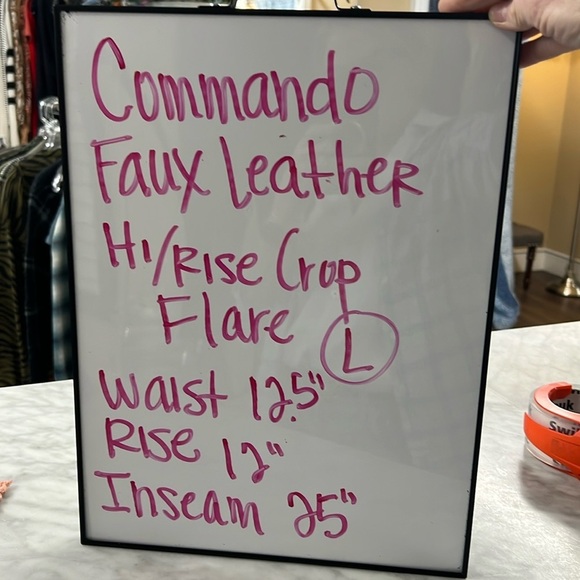 Commando
Faux Leather
Hi/Rise Crop
Flare L
Waist 12.5"
Rise 12"
Inseam 25"